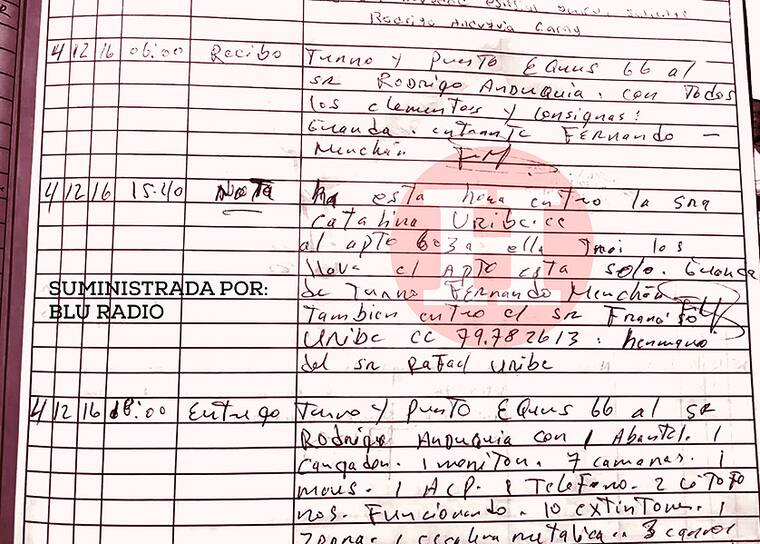 Rodrigo Anduquia Garay
4 12 16 06:00 Recibo Turno y Puesto Equus 66 al
sr Rodrigo Anduquia. con Todos
los elementos y consignas:
Guarda. entrante Fernando —
Menchán FM
4 12 16 15:40 Nota ha esta hora entro la sra
Catalina Uribe cc
al apto 603 ella los
llava el Apto esta solo. Guarda
de Turno Fernando Menchán
SUMINISTRADA POR:
BLU RADIO
Tambien entro el sr Francisco
Uribe cc 79.782613: hermano
del sr Rafael Uribe
4 12 16 18:00 Entrego Turno y Puesto Equus 66 al sr
Rodrigo Anduquia con 1 1
Cargador. 1 monitor. 7 camaras. 1
mous. 1 ACP. 1 Telefono. 2 Citofo
nos. Funcionando. 10 extintores. 1
1 escalera metalica. 3